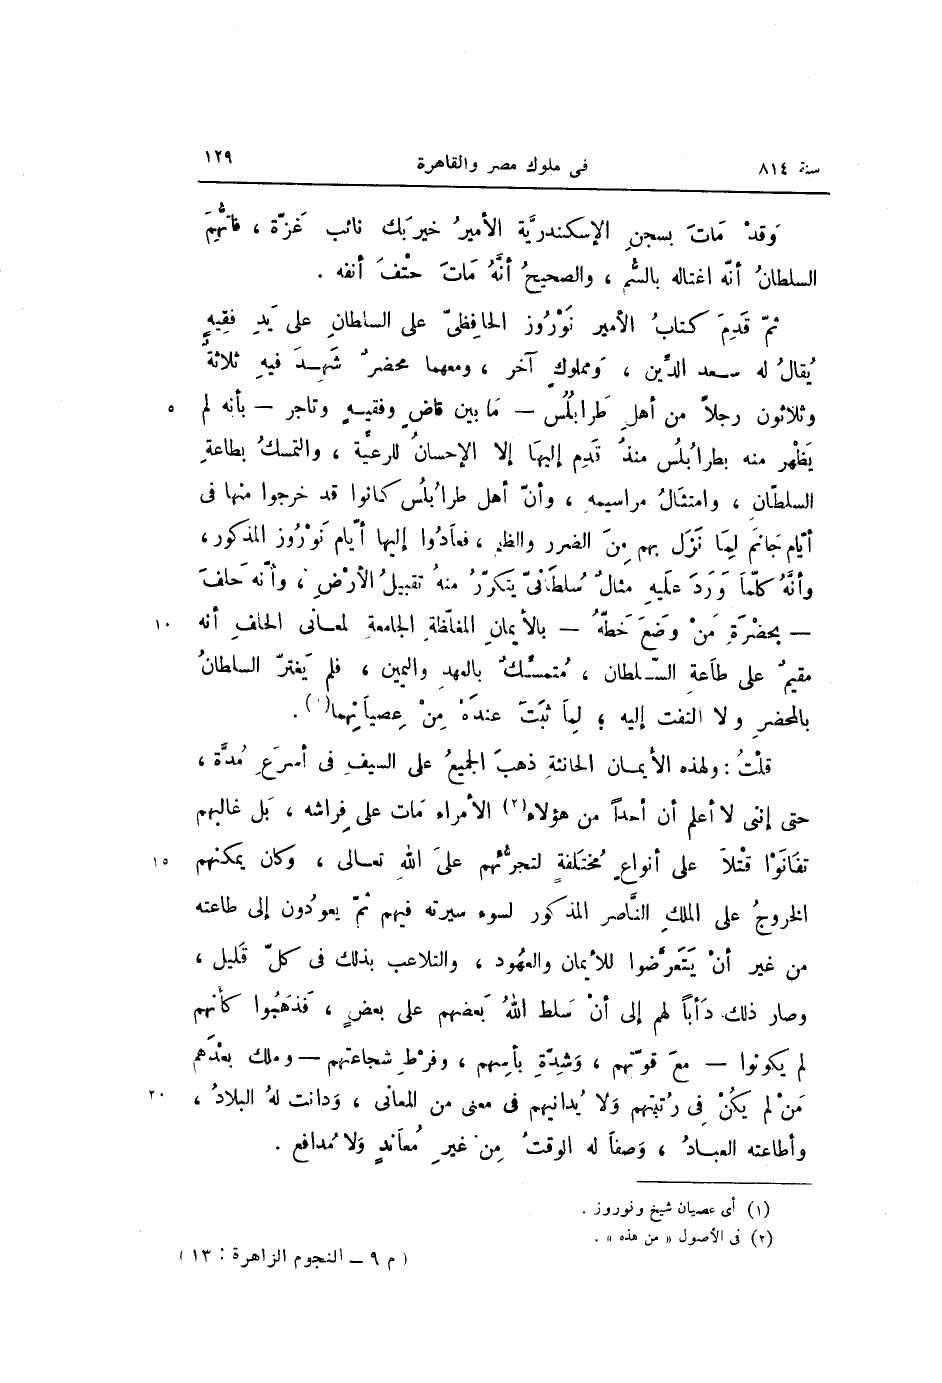 سنة ٨١٤ فى ملوك مصر والقاهرة ١٢٩
وَقدْ مَاتَ بسجنِ الإسكندريَّة الأميرُ خيربَك نائب غَزّة ، فاتُّهِمَ
السلطانُ أنّه اغتاله بالسُّم ، والصحيحُ أنَّهُ مَاتَ حتْفَ أنفه .
ثمّ قَدِمَ كتابُ الأمير نَوْرُوز الحافظىّ على السلطانِ على يَدِ فقِيهٍ
يُقالُ له سعد الدِّين ، ومملوكٍ آخر ، ومعهما محضرٌ شَهِدَ فيهِ ثلاثةٌ
وثلاثون رجلاً من أهلِ طَرابُلُس – مَا بين قاضٍ وفقيهٍ وتاجر – بأنه لم ٥
يَظْهر منه بطرابُلُس منذُ قَدِم إليهَا إلا الإحسانُ للرعيَّة ، والتمسكُ بطاعةِ
السلطَان ، وامتثالُ مراسيمه ، وأنّ أهل طرابُلُس كانوا قد خرجوا منها فى
أيّام جَانَم لِمَا نَزَل بهم مِنَ الضرر والظلم ، فعَادُوا إليها أيّام نَوْرُوز المذكور ،
وأنَّهُ كلّمَا وَرَدَ عليهِ مثالٌ سُلطَانىّ يتكرّرُ منهُ تقبيلُ الأرْضِ ، وأنّه حَلفَ
– بحضْرَةِ مَنْ وضَعَ خَطهُ – بالأيمانِ المغلّظةِ الجامعةِ لمعانى الحلفِ أنه ١٠
مقيمٌ على طاَعةِ السّلطان ، مُتمسِّكٌ بالعهدِ واليمين ، فلم يَغترّ السلطانُ
بالمحضرِ ولا التفت إليه ؛ لِمَا ثبَتَ عندَهُ مِنْ عِصيَانِهما(١) .
قلْتُ : ولهذه الأيمان الحانثةِ ذهبَ الجميعُ على السيفِ فى أسرَعِ مُدَّة ،
حتى إننى لا أعلم أن أحداً من هؤلاء(٢) الأمراء مَات على فِراشه ، بَل غالبهم
تفَانَوْا قتْلاً على أنواعٍ مُختَلفةٍ لتجرُّئهم علىَ اللهِ تعالى ، وكان يمكنهم ١٥
الخروجُ على الملكِ النَّاصر المذكور لسوء سيرته فيهم ثمّ يعودُون إلى طاعته
من غير أنْ يَتَعرَّضوا للأيمان والعهُود ، والتلاعب بذلك فى كلّ قَليل ،
وصار ذلك دَأباً لهم إلى أنْ سَلط اللهُ بَعضهم على بعضٍ ، فَذهَبُوا كأنهم
لم يكونوا – معَ قوّتهم ، وَشِدّةِ بأسِهم ، وفرْطِ شجاعتهم – وملك بعْدَهم
مَنْ لم يَكُنْ فِى رُتبتِهم وَلا يُدانِيهم فى معنى من المعانى ، وَدانت لهُ البلادُ ، ٢٠
وأطاعته العبادُ ، وَصفاَ له الوقتُ مِن غيرِ مُعاَندٍ وَلا مُدافع .
(١) أى عصيان شيخ ونوروز .
(٢) فى الأصول « من هذه » .
( م ٩ – النجوم الزاهرة : ١٣ )